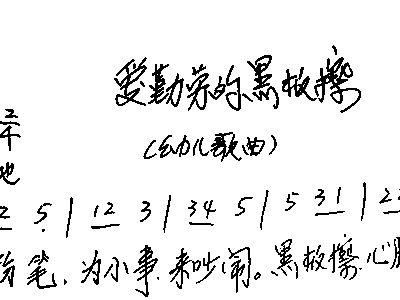 爱勤劳的黑板擦
(幼儿歌曲)
2 5 | 12 3 | 34 5 | 5 31 | 2
粉笔,为小事,来吵闹。黑板擦,心